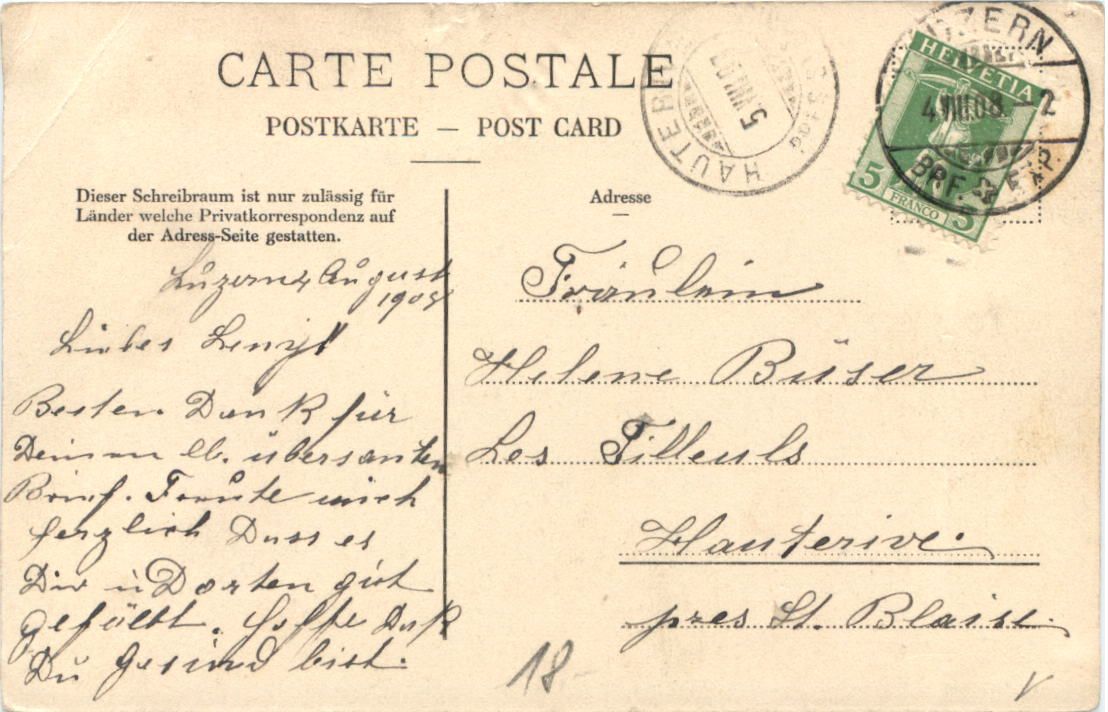 CARTE POSTALE
POSTKARTE — POST CARD
HAUTERIVE
5 VIII 08
LUZERN
4.VIII.08. – 2
BRF.
HELVETIA
5 FRANCO 5
Dieser Schreibraum ist nur zulässig für
Länder welche Privatkorrespondenz auf
der Adress-Seite gestatten.
Adresse
Luzern 4 August
1908
Liebes
Besten Dank für
Deinen lb. übersanten
Brief. Freute mich
herzlich Dass es
Dir u Dorten gut
gefällt. Hoffe Daß
Du Gesund bist.
Fräulein
Helene Büser
Les Tilleuls
Hauterive.
près St. Blaise.
18-